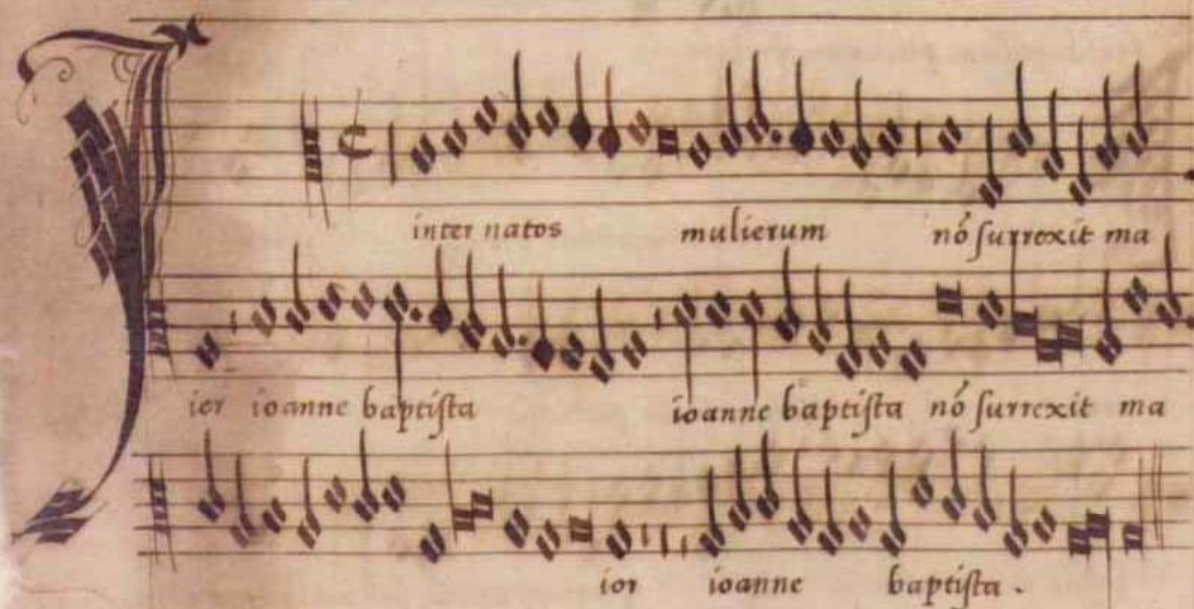 I inter natos mulierum nõ surrexit ma
ior ioanne baptista ioanne baptista nõ surrexit ma
ior ioanne baptista.